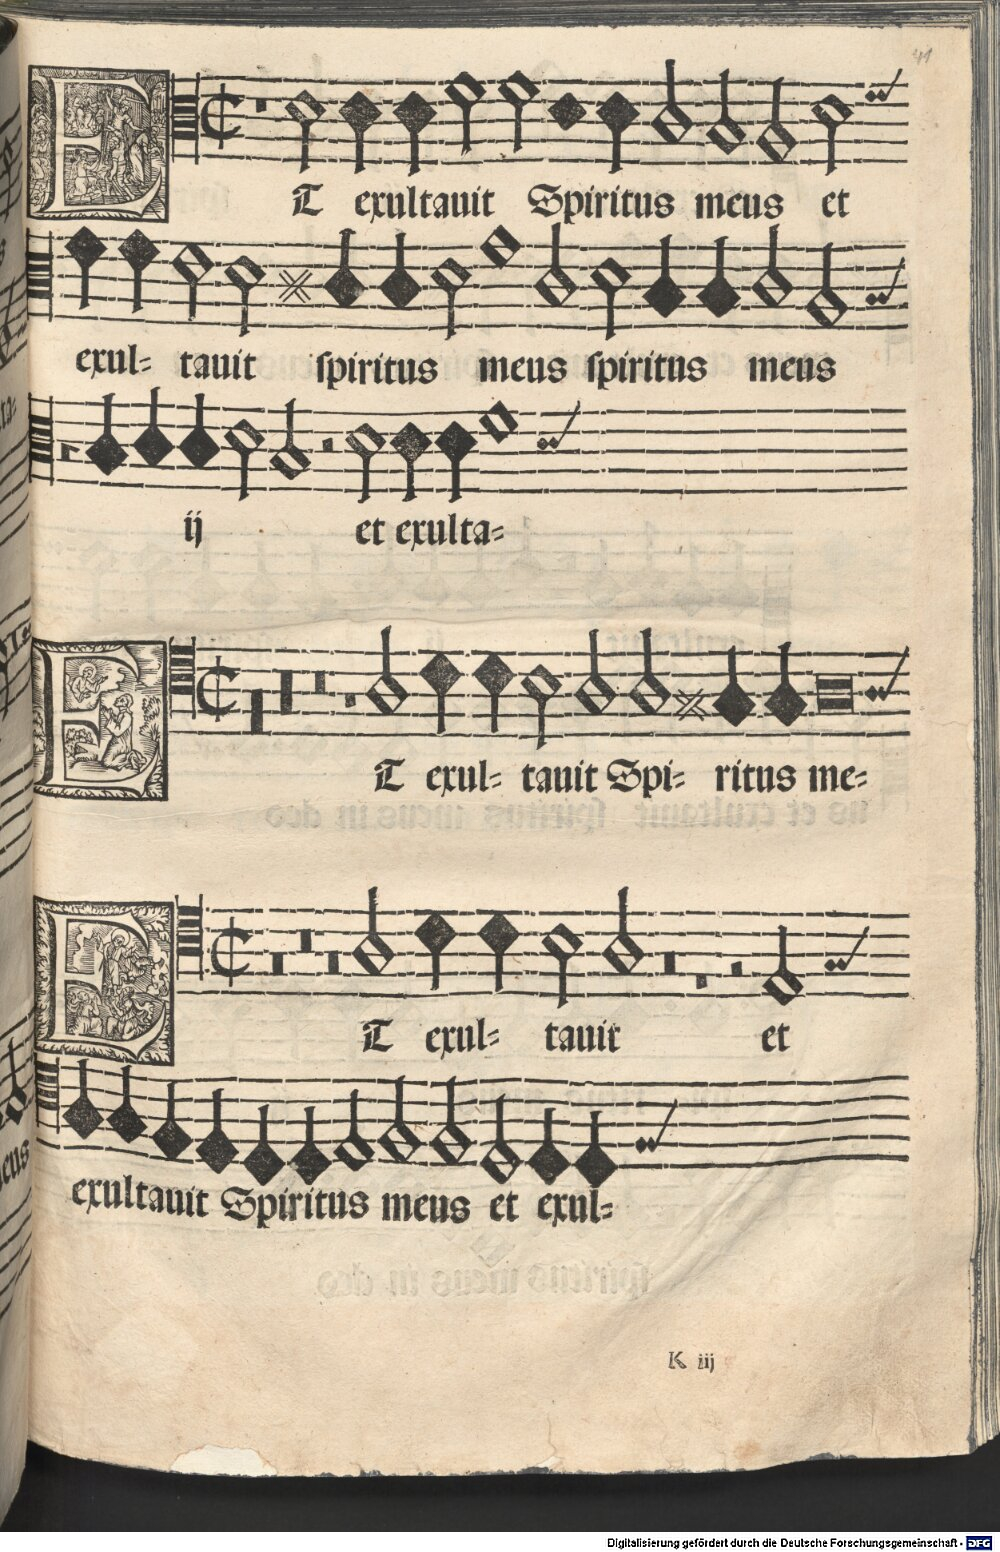 41
ET exultauit Spiritus meus et
exul= tauit spiritus meus spiritus meus
ij et exulta=
ET exul= tauit Spi= ritus me=
ET exul= tauit et
exultauit Spiritus meus et exul=
K iij
Digitalisierung gefördert durch die Deutsche Forschungsgemeinschaft - DFG